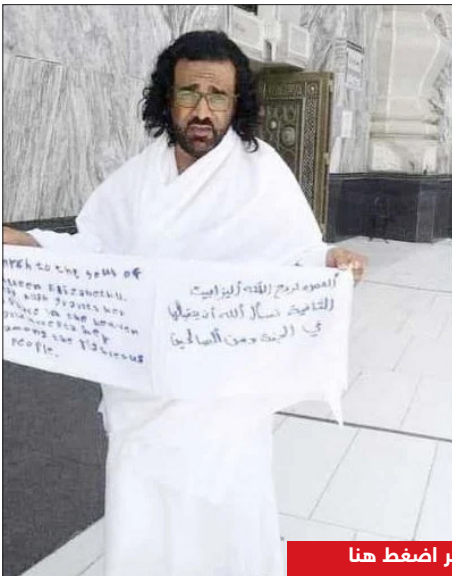 mrah to the soul of
ueen Elizabeth II.
Allah grants her
Place in the heaven
her
among the righteous
People.
العمرة لروح الملكة أليزابيث
الثانية نسأل الله أن يتقبلها
في الجنة ومن الصالحين
ر اضغط هنا